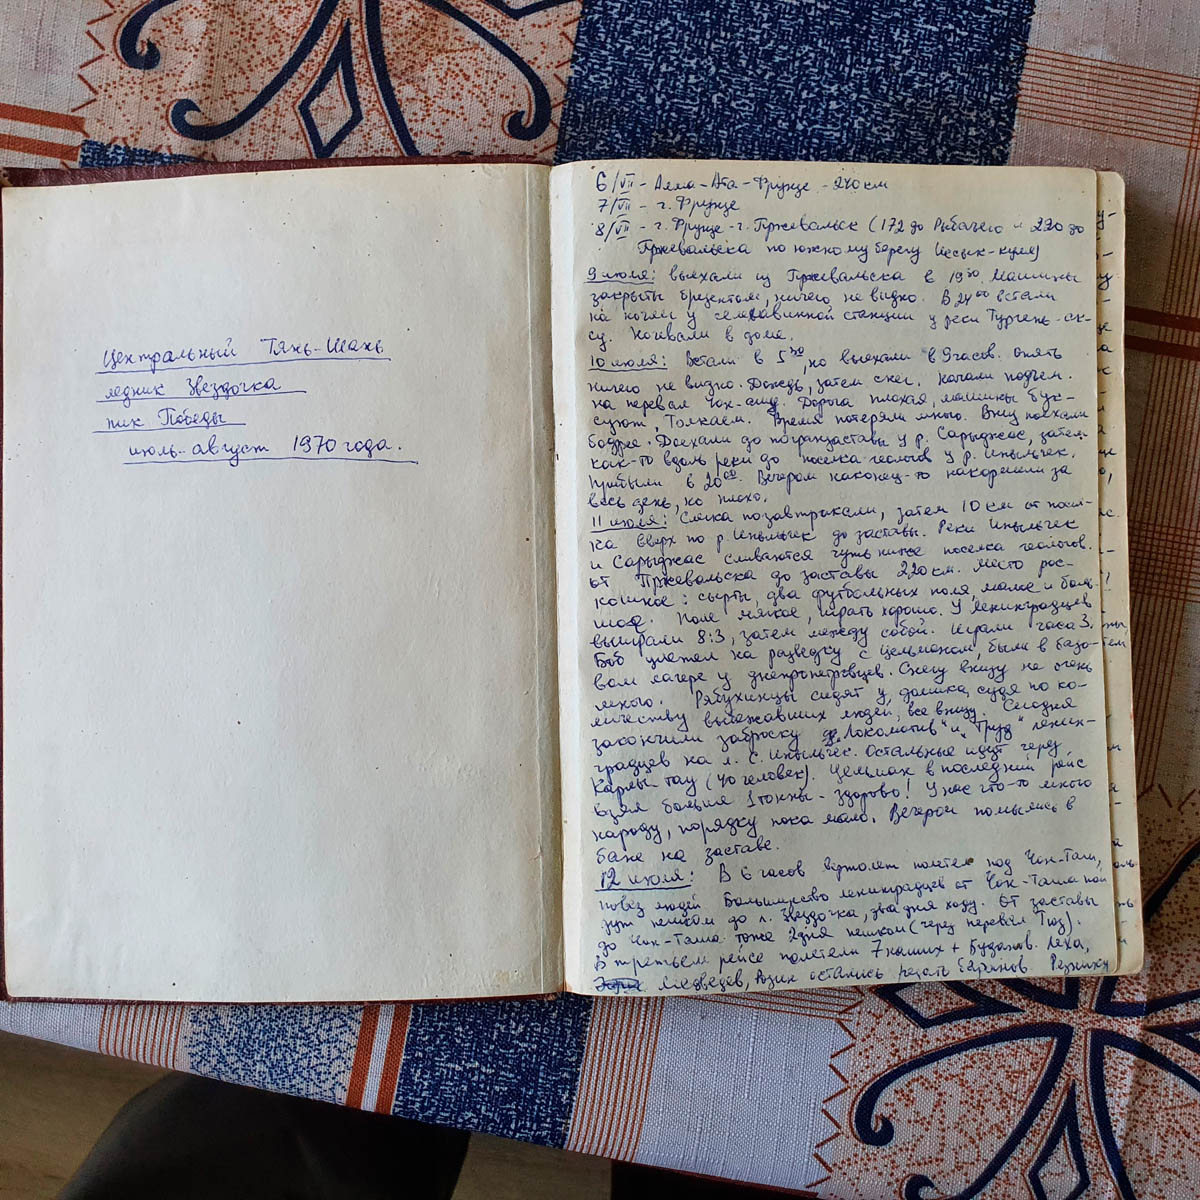 Центральный Тянь-Шань
ледник Звездочка
пик Победы
июль-август 1970 года.
6/VII - Алма-Ата-Фрунзе - 240 км
7/VII - г. Фрунзе
8/VII - г. Фрунзе - г. Пржевальск (172 до Рыбачего и 220 до
Пржевальска по южному берегу Иссык-куля)
9 июля: выехали из Пржевальска в 19³⁰. Машины
закрыты брезентом, ничего не видно. В 24⁰⁰ встали
на ночлег у селевой станции у реки Тургень-ак-
су. Ночевали в доме.
10 июля: Встали в 5³⁰, но выехали в 9 часов. Опять
ничего не видно. Дождь, затем снег. Начали подъем
на перевал Чон-ашу. Дорога плохая, машины бук-
суют, толкаем. Время потеряли много. Вниз поехали
бодрее. Доехали до погранзаставы у р. Сарыджас, затем
как-то вдоль реки до поселка геологов у р. Иныльчек.
Прибыли в 20⁰⁰. Вечером наконец-то накормили за
весь день, но плохо.
11 июля: Слегка позавтракали, затем 10 км от посел-
ка вверх по р. Иныльчек до заставы. Реки Иныльчек
и Сарыджас сливаются чуть ниже поселка геологов.
От Пржевальска до заставы 220 км. Место рос-
кошное: сырты, два футбольных поля, малое и боль-
шое. Поле мягкое, играть хорошо. У ленинградцев
выиграли 8:3, затем между собой. Играли часа 3.
Боб улетел на разведку с Цельманом, были в базо-
вом лагере у днепропетровцев. Снегу внизу не очень
много. Рябухинцы сидят у домика, судя по ко-
личеству выбежавших людей, все внизу. Сегодня
закончили заброску „Локомотив" и „Труд" ленин-
градцев на л. С. Иныльчек. Остальные идут через
Карлы тау (40 человек). Цельман в последний рейс
взял больше 1 тонны - здорово! У нас что-то много
народу, порядку пока мало. Вечером помылись в
бане на заставе.
12 июля: В 6 часов вертолет полетел под Чон-Таш,
повез людей. Большинство ленинградцев от Чон-Таша пой
дут пешком до л. Звездочка, два дня ходу. От заставы
до Чон-Таша тоже 2 дня пешком (через перевал Тюз).
В третьем рейсе полетели 7 наших + Буданов. Леха,
Медведев, Розин остались резать баранов. Резнику